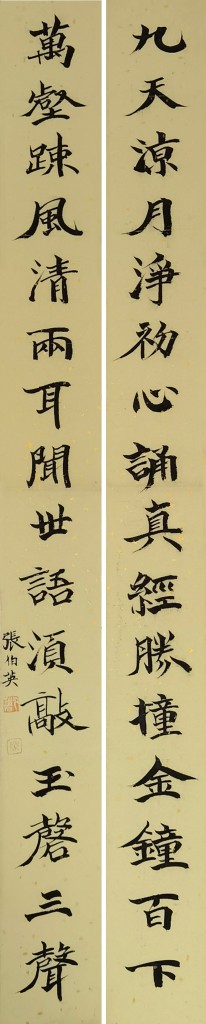 九天涼月淨初心誦真經勝撞金鐘百下
萬壑踈風清兩耳聞世語湏敲玉磬三聲
張伯英